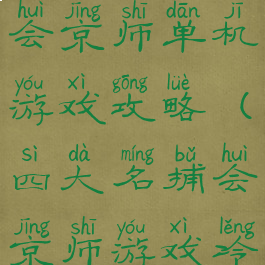 huì jīng shī dān jī
会京师单机
yóu xì gōng lüè
游戏攻略（
sì dà míng bǔ huì
四大名捕会
jīng shī yóu xì lěng
京师游戏冷